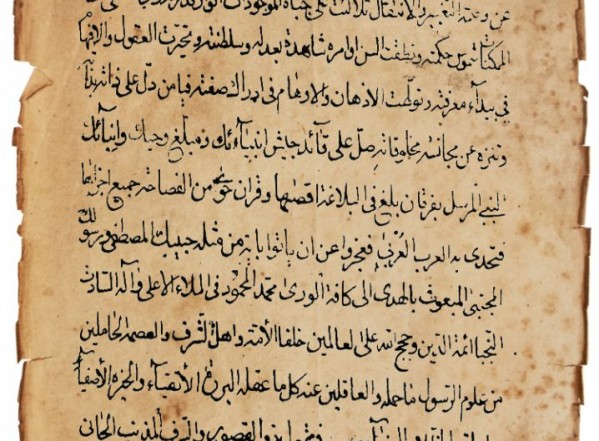 عن وصمة التغيير والانتقال تلالت على جباه الموجودات
الممكنات شموس حكمته ونطقت السن اوامره شاهدة بعدله وسلطنته وتحيرت العقول والافهام
في بيداء معرفته وتولهت الاذهان والاوهام في ادراك صفته فيا من دل على ذاته بذاته
وتنزه عن مجانسة مخلوقاته صل على قائد جايش انبيائك ومبلغ وحيك وانبائك
النبي المرسل بفرقان بلغ في البلاغة اقصيها وقران حوى من الفصاحة جميع اجزائها
فتحدى به العرب العرباء فعجزوا عن ان ياتوا باية من مثله حبيبك المصطفى ورسولك
المجتبى المبعوث بالهدى الى كافة الورى محمد المحمود في الملاء الاعلى وآله السادات
النجبا ائمة الدين وحجج الله على العالمين خلفا الامة واهل الشرف والعصمة الحاملين
من علوم الرسول ما حمله والعاقلين عنه كل ما عقله البررة الاتقياء والخيرة الاصفياء
القصور المذنب الجاني